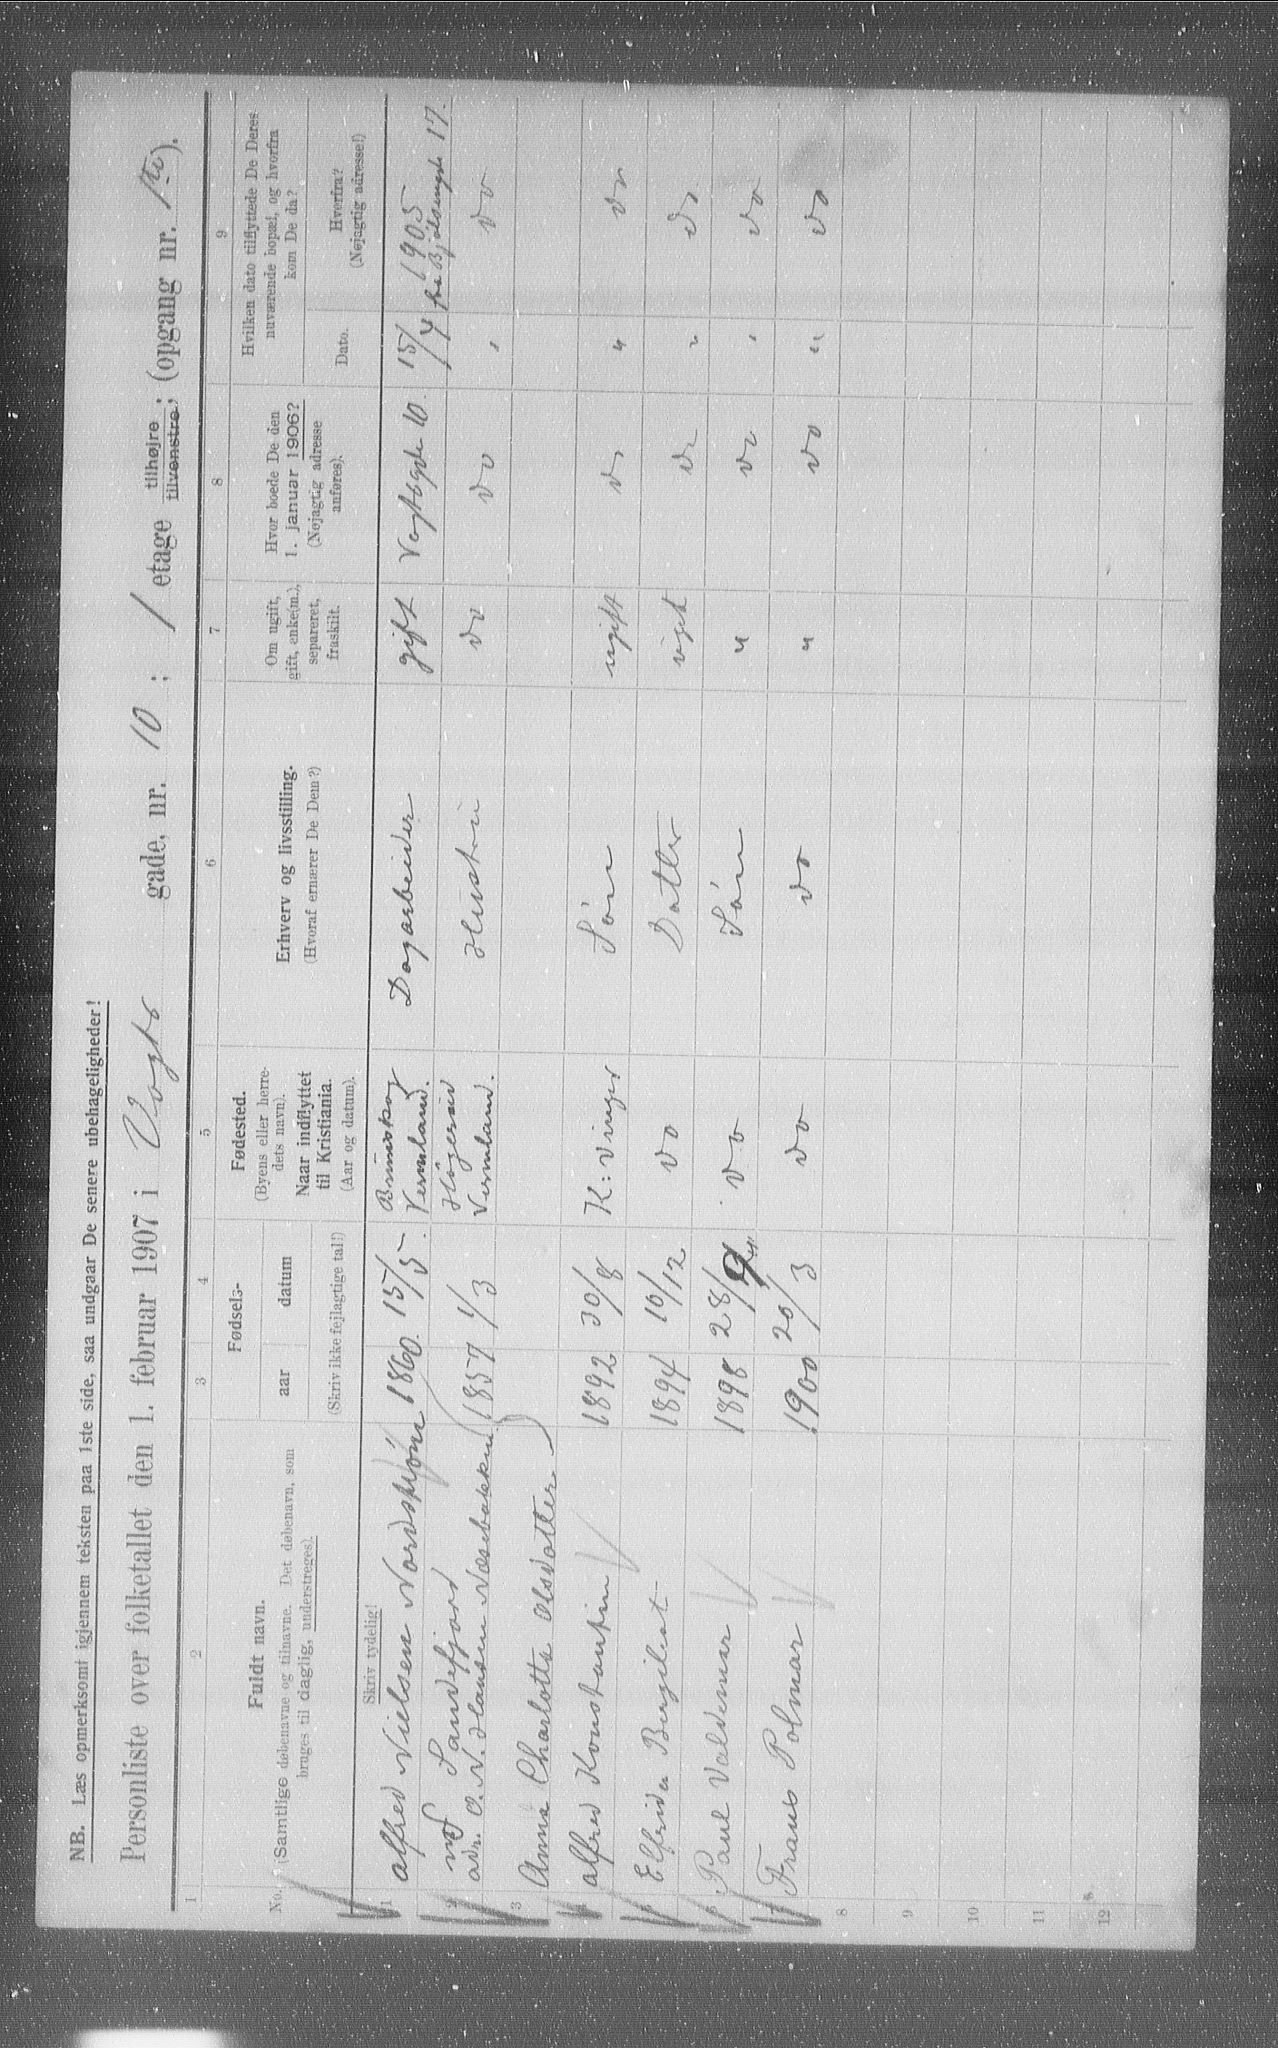 NB. Læs opmerksomt igjennem teksten paa 1ste side, saa undgaar De senere ubehageligheder!
Personliste over folketallet den 1. februar 1907 i Vogts gade, nr. 10 ; 1 etage tilhøjre tilvenstre; (opgang nr. 1ste).
1 2 3 4 5 6 7 8 9
No. Fuldt navn.
(Samtlige døbenavne og tilnavne. Det døbenavn, som
bruges til daglig, understreges).
Fødsels-
aar datum
(Skriv ikke fejlagtige tal!)
Fødested.
(Byens eller herre-
dets navn).
Naar indflyttet
til Kristiania.
(Aar og datum).
Erhverv og livsstilling.
(Hvoraf ernærer De Dem?)
Om ugift,
gift, enke(m.),
separeret,
fraskilt.
Hvor boede De den
1. januar 1906?
(Nøjagtig adresse
anføres).
Hvilken dato tilflyttede De Deres
nuværende bopæl, og hvorfra
kom De da?
Dato.
Hvorfra?
(Nøjagtig adresse!)
Skriv tydelig!
1 Alfred Nielsen 1860. 15/5. Brunskog Vermland. Dagarbeider gift Vogtsgde 10. 15/4 1905 fra Bjølsengde 17.
Sandefjord
2 adr. O. N. Hansen Næsebakken 1857 1/3 Vermland. Hustru do do " do
3 Anna Charlotta Olsdatter
4 Alfred Konstantin 1892 30/8 K: vinger Søn ugift do " do
5 Elfrida 1894 10/12 do Datter ugift do " do
6 Paul Valdemar 1898 28/9 do Søn " do " do
7 Frans Polmar 1900 20/3 do do " do " do
8
9
10
11
12